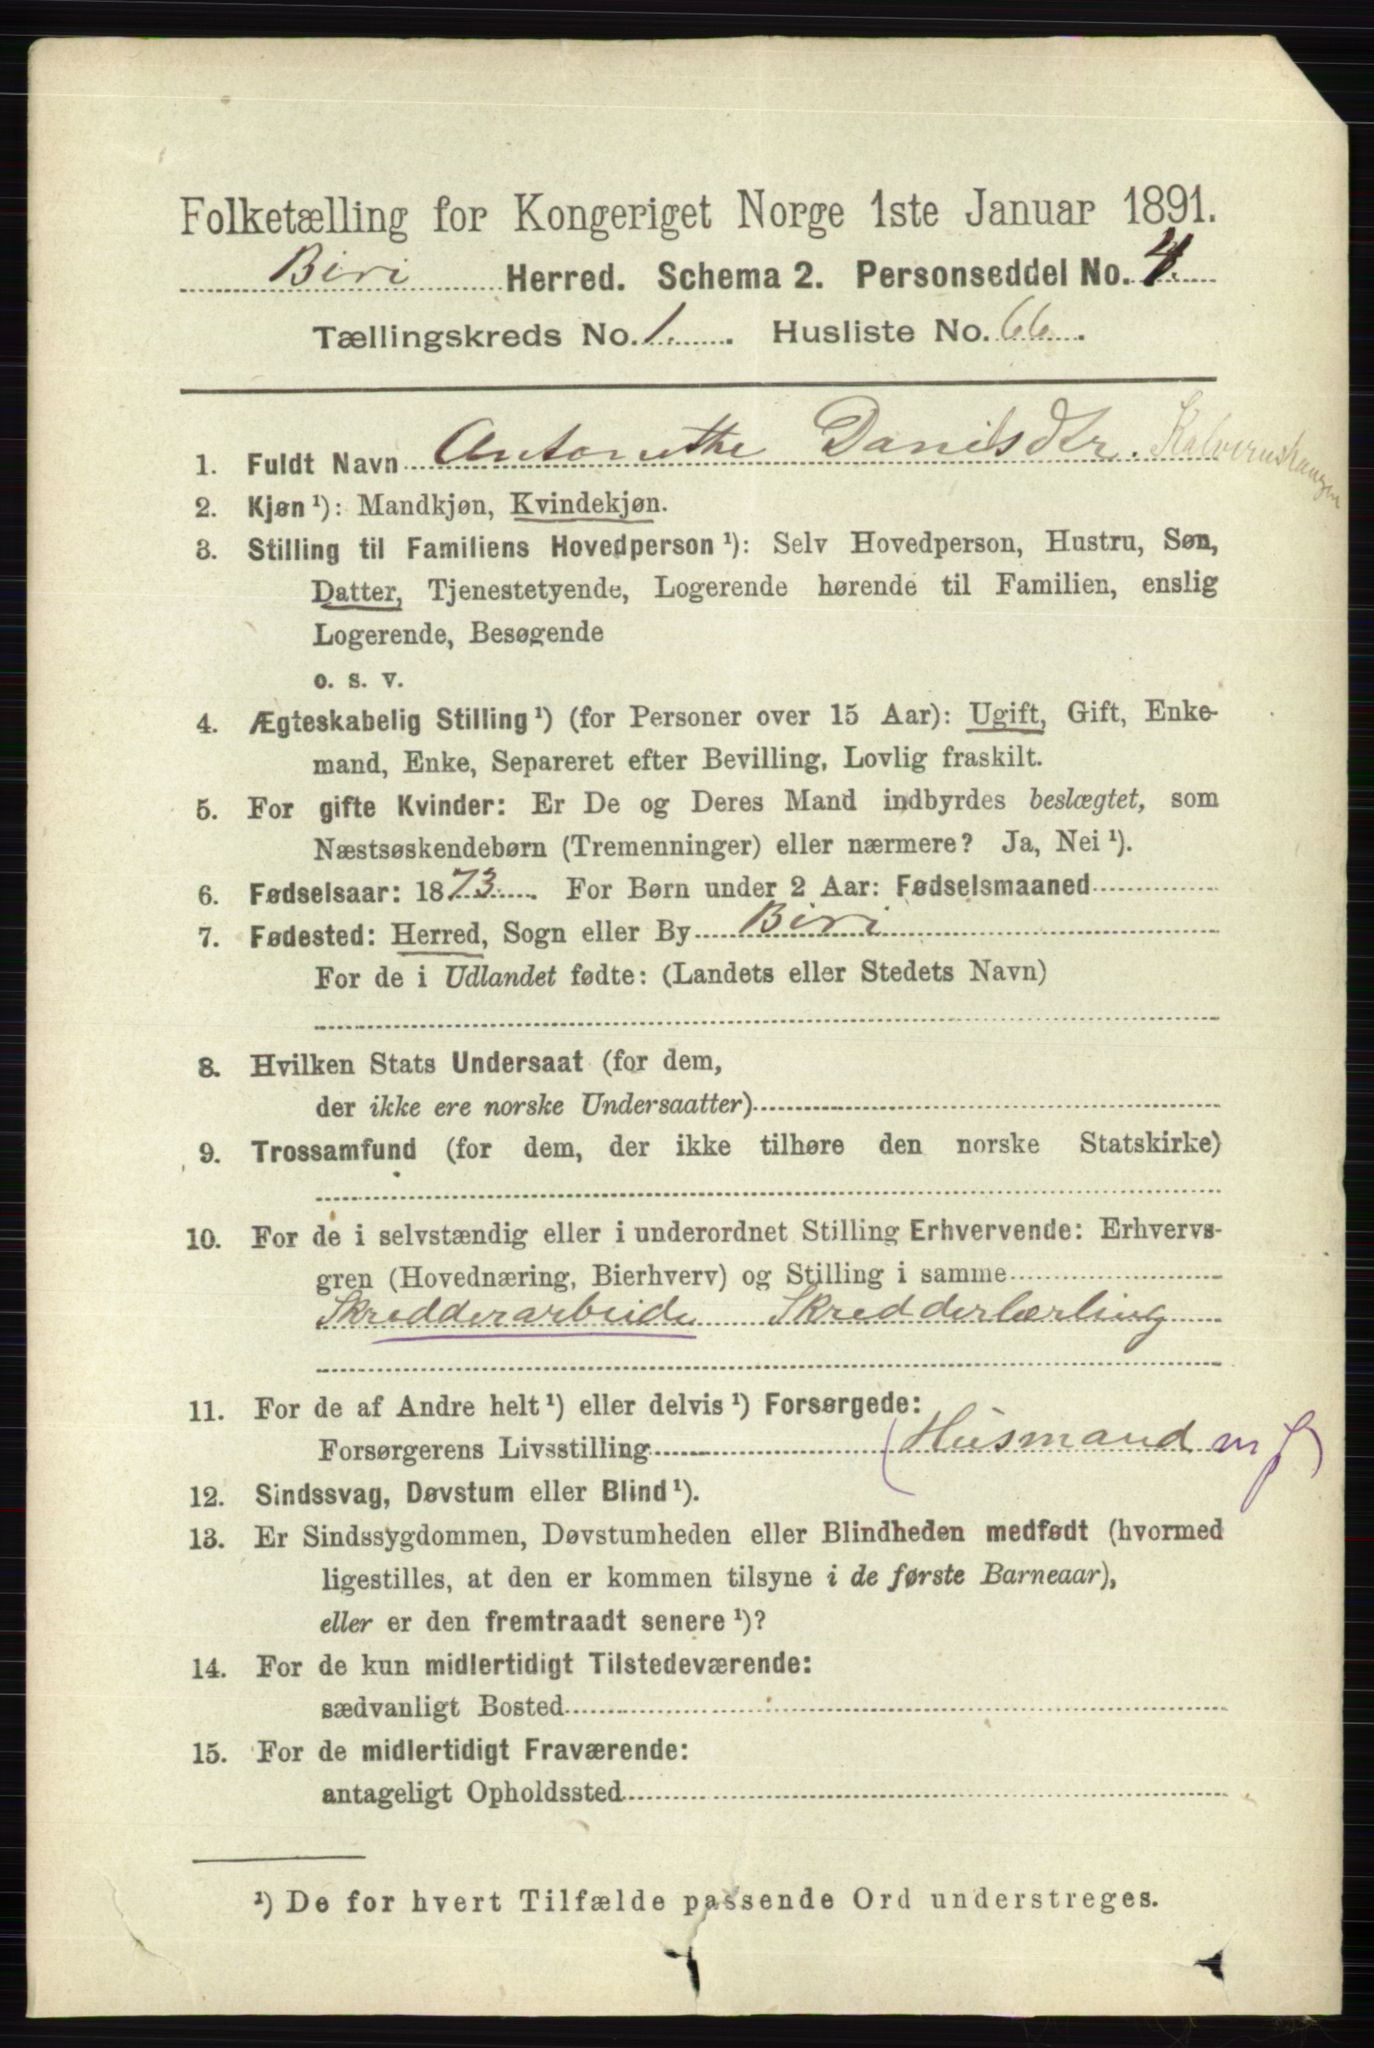 Folketælling for Kongeriget Norge 1ste Januar 1891.
Biri Herred. Schema 2. Personseddel No. 4.
Tællingskreds No. 1. Husliste No. 66.
1. Fuldt Navn Antonethe Danielsdtr.
2. Kjøn ¹): Mandkjøn, Kvindekjøn.
3. Stilling til Familiens Hovedperson ¹): Selv Hovedperson, Hustru, Søn,
Datter, Tjenestetyende, Logerende hørende til Familien, enslig
Logerende, Besøgende
o. s. v.
4. Ægteskabelig Stilling ¹) (for Personer over 15 Aar): Ugift, Gift, Enke-
mand, Enke, Separeret efter Bevilling, Lovlig fraskilt.
5. For gifte Kvinder: Er De og Deres Mand indbyrdes beslægtet, som
Næstsøskendebørn (Tremenninger) eller nærmere? Ja, Nei ¹).
6. Fødselsaar: 1873. For Børn under 2 Aar: Fødselsmaaned
7. Fødested: Herred, Sogn eller By Biri
For de i Udlandet fødte: (Landets eller Stedets Navn)
8. Hvilken Stats Undersaat (for dem,
der ikke ere norske Undersaatter)
9. Trossamfund (for dem, der ikke tilhøre den norske Statskirke)
10. For de i selvstændig eller i underordnet Stilling Erhvervende: Erhvervs-
gren (Hovednæring, Bierhverv) og Stilling i samme
Skredderarbeide Skredderlærling
11. For de af Andre helt ¹) eller delvis ¹) Forsørgede:
Forsørgerens Livsstilling (Husmand m J)
12. Sindssvag, Døvstum eller Blind ¹).
13. Er Sindssygdommen, Døvstumheden eller Blindheden medfødt (hvormed
ligestilles, at den er kommen tilsyne i de første Barneaar),
eller er den fremtraadt senere ¹)?
14. For de kun midlertidigt Tilstedeværende:
sædvanligt Bosted
15. For de midlertidigt Fraværende:
antageligt Opholdssted
¹) De for hvert Tilfælde passende Ord understreges.